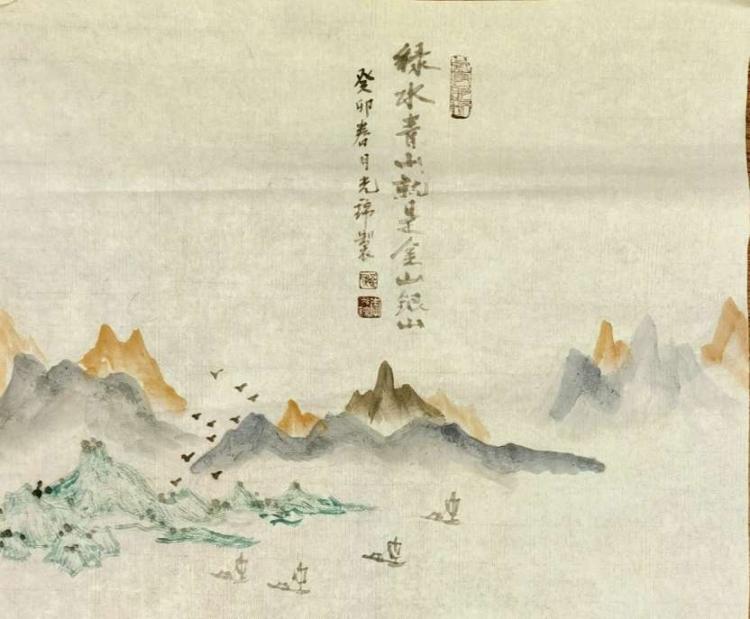 绿水青山就是金山银山
癸卯春月光製